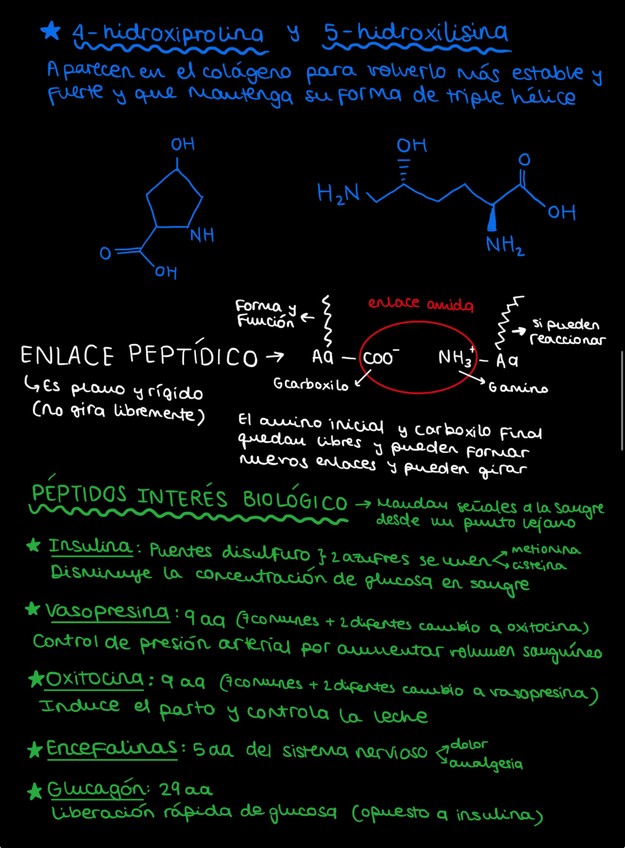 ★ 4-hidroxiprolina y 5-hidroxilisina
Aparecen en el colágeno para volverlo más estable y
fuerte y que mantenga su forma de triple hélice
OH
NH
O
OH
OH
H₂N
O
OH
NH₂
Forma y
Función
enlace amida
si pueden
reaccionar
ENLACE PEPTÍDICO → Aa – COO⁻ NH₃⁺ – Aa
Gcarboxilo
Gamino
↳ Es plano y rígido
(no gira libremente)
El amino inicial y carboxilo final
quedan libres y pueden formar
nuevos enlaces y pueden girar
PÉPTIDOS INTERÉS BIOLÓGICO → Mandan señales a la sangre
desde un punto lejano
★ Insulina: Puentes disulfuro } 2 azufres se unen
metionina
cisteína
Disminuye la concentración de glucosa en sangre
★ Vasopresina: 9 aa (7 comunes + 2 difentes cambio a oxitocina)
Control de presión arterial por aumentar volumen sanguíneo
★ Oxitocina: 9 aa (7 comunes + 2 difentes cambio a vasopresina)
Induce el parto y controla la leche
★ Encefalinas: 5 aa del sistema nervioso
dolor
analgesia
★ Glucagón: 29 aa
liberación rápida de glucosa (opuesto a insulina)